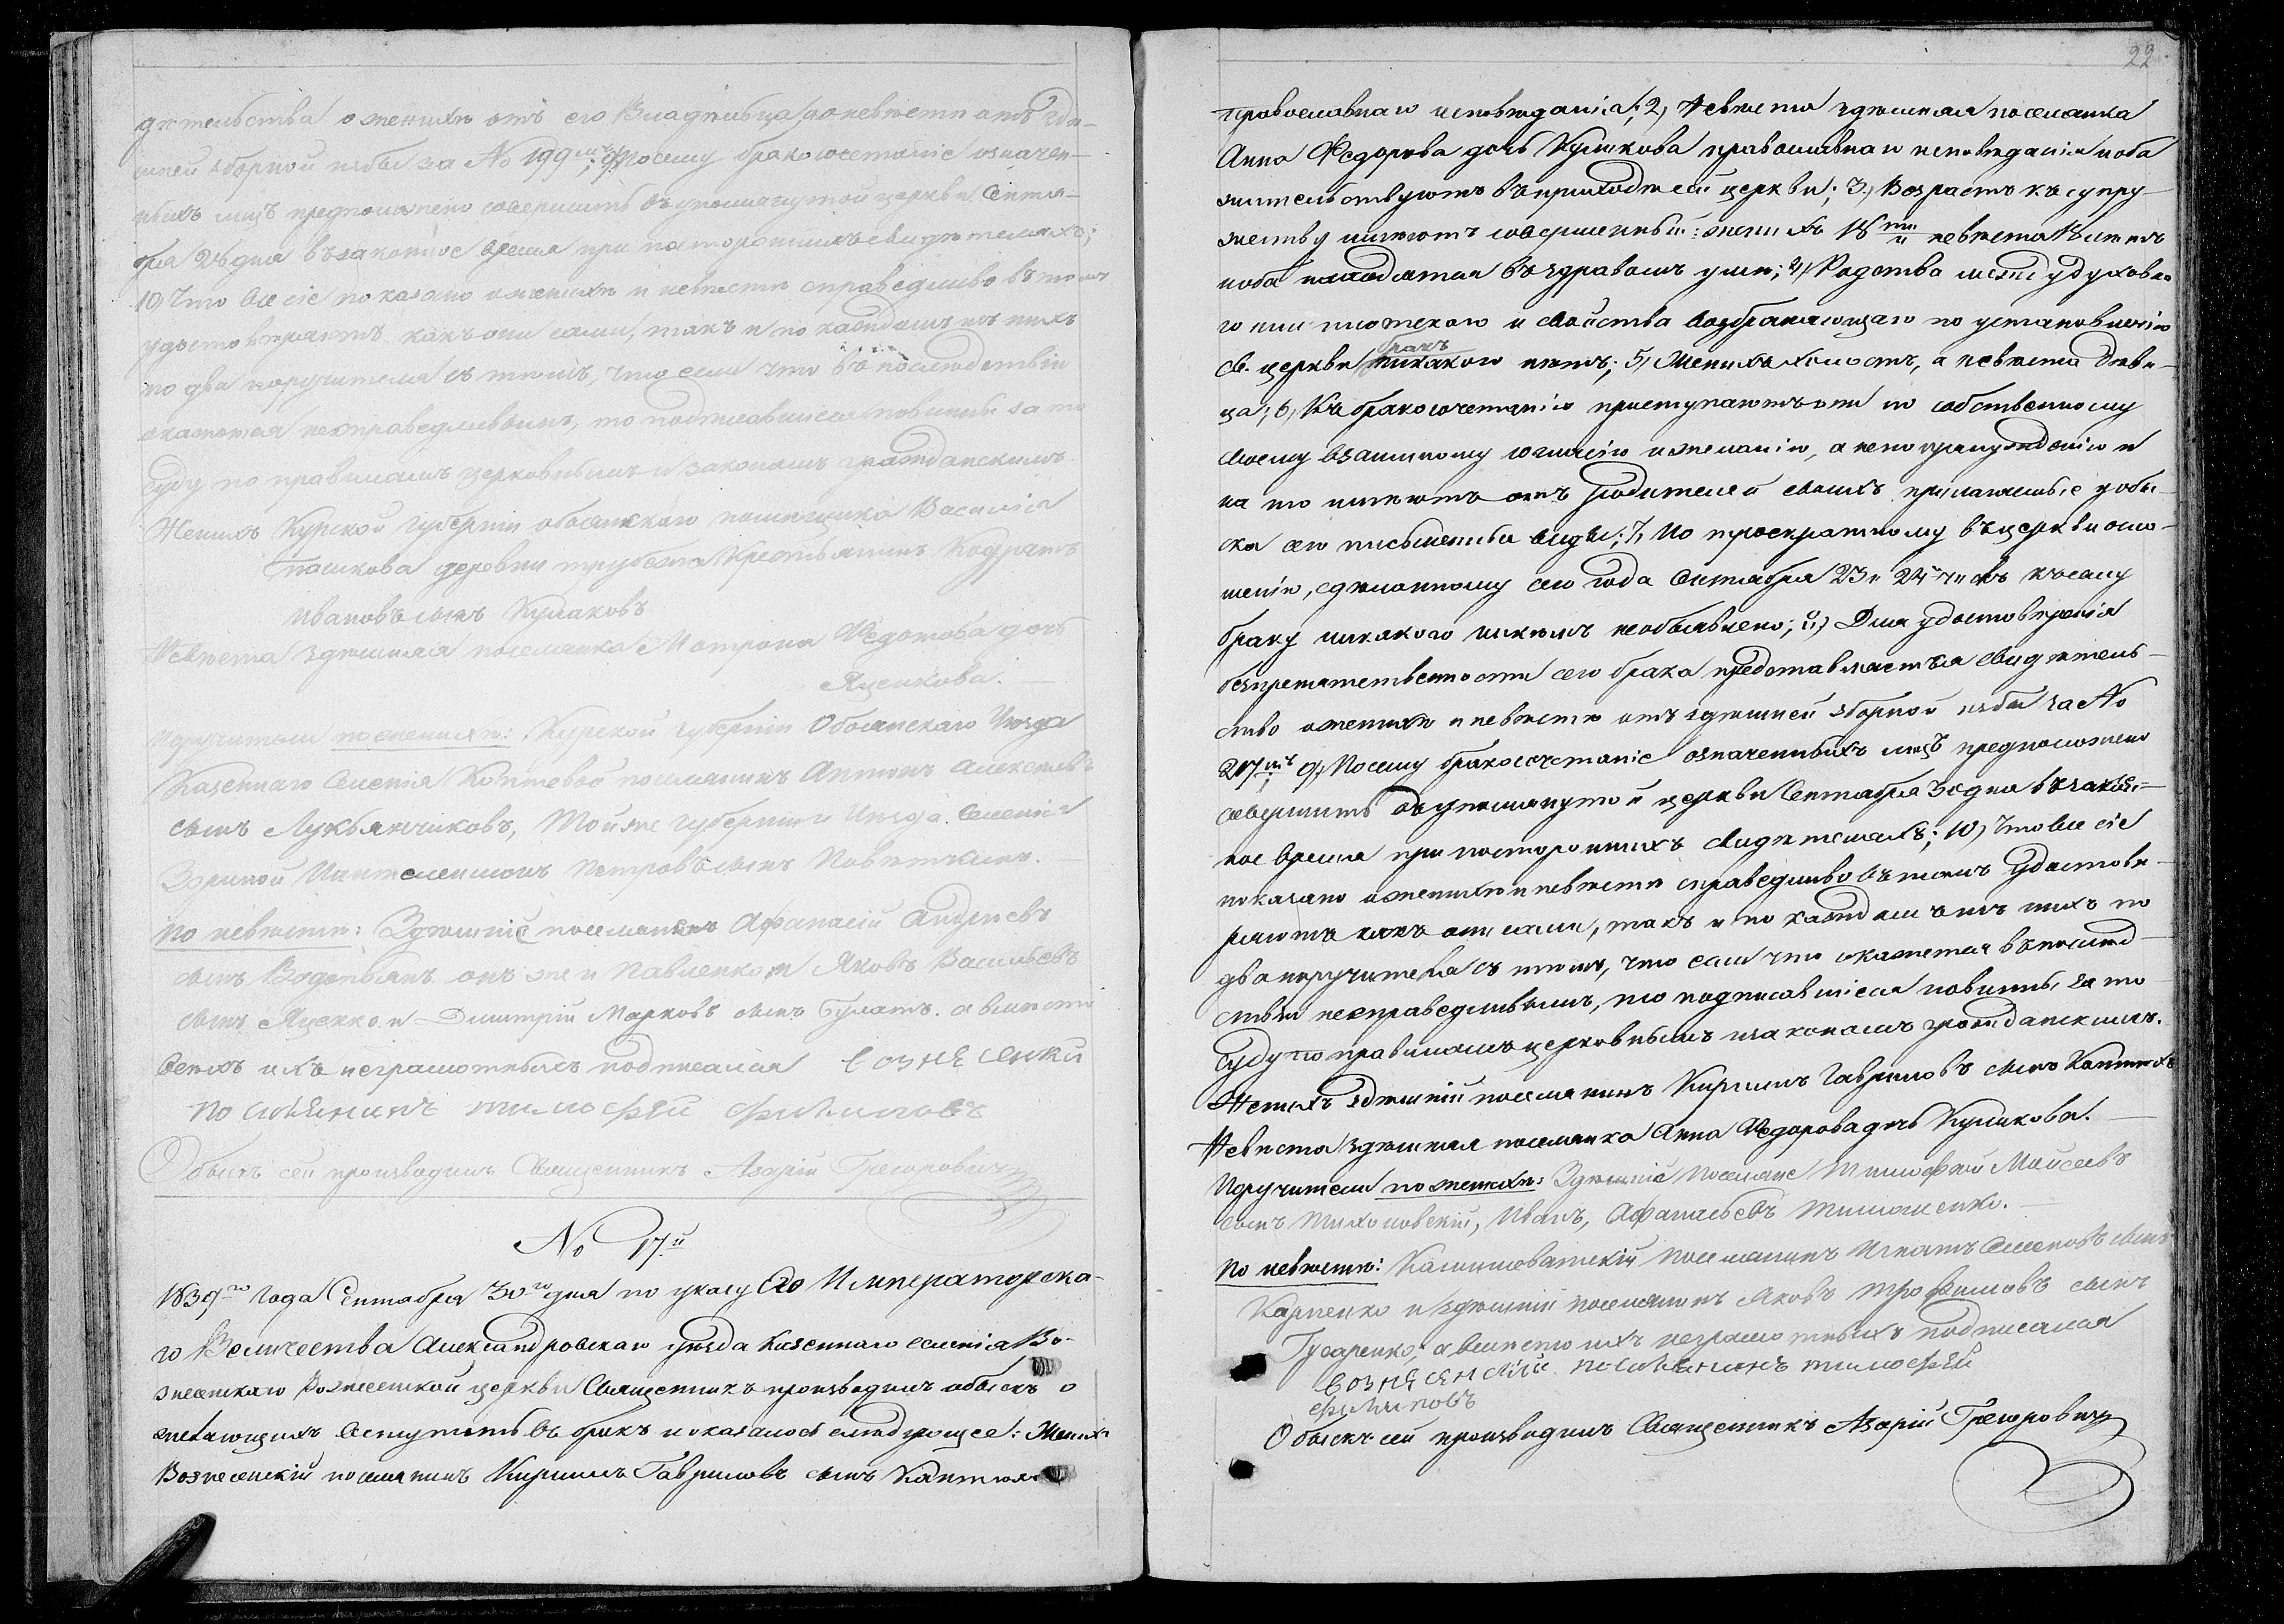 дѣтельства о женихѣ отъ его Владѣльца, а о невѣстѣ отъ здѣ-
шней зборной избы за № 199мъ; 9) Посему бракосочетаніе означен-
ныхъ лицъ предположено совершить въ упомянутой церкви Сентя-
бря дня въ законное время при постороннихъ свидѣтеляхъ;
10) Что все сіе показано о женихѣ и невѣстѣ справедливо въ томъ
удостовѣряютъ какъ они сами, такъ и по каждомъ изъ нихъ
по два поручителя съ тѣмъ, что если что въ послѣдствіи
окажется несправедливымъ, то подписавшіеся повинны за то
Суду по правиламъ церковнымъ и законамъ гражданскимъ.
Женихъ Курской губерніи обоянскаго помѣщика Василія
Пашкова деревни трубежа Крестьянинъ Кодратъ
Ивановъ сынъ Кулаковъ
Невѣста здѣшняя поселянка Матрона Федотова дочь
Яценкова.
Поручители по женихѣ: Курской губерніи Обоянскаго Уѣзда
Казеннаго Селенія поселянинъ Антонъ Алексѣевъ
сынъ Лукьянчиковъ, Той же губерніи и Уѣзда Селенія
Зориной Пантелеимонъ Петровъ сынъ
По невѣстѣ: Здѣшніе поселяне Афанасій Андреевъ
сынъ онъ же и Павленко, и Яковъ Васильевъ
сынъ Яценко и Дмитрій Марковъ сынъ Гулатъ. а вмѣсто
Всѣхъ ихъ неграмотныхъ подписался возне сенки
по сѣлянинъ тимофей филиповъ
Обыскъ сей производилъ Священникъ Азарій Грегоровичъ
№ 17й
1839го Года Сентября 30го дня по указу Его Императорска-
го Величества Александровскаго уѣзда Казеннаго селенія Во-
знесенскаго Вознесенской церкви Священникъ производилъ обыскъ о
желающихъ вступить въ бракъ и оказалось слѣдующее: Женихъ
Вознесенскій поселянинъ Кирилъ Гавриловъ сынъ
22
православнаго исповѣданія; 2) Невѣста здѣшняя поселянка
Анна Федорова дочь Куликова православнаго исповѣданія и оба
жительствуютъ въ приходѣ сей церкви; 3) Возрастъ къ супру-
жеству имѣютъ совершенный: женихъ 18ти и невѣста лѣтъ
и оба находятся въ здравомъ умѣ; 4) Родства между духовна-
го или плотскаго и свойства возбраняющаго по установленію
Св. церкви бракъ никакого нѣтъ; 5) Женихъ холостъ, а невѣста дѣви-
ца; 6) Къ бракосочетанію приступаютъ они по собственному
своему взаимному согласію и желанію, а не по принужденію и
на то имѣютъ отъ родителей своихъ прилагаемые у обы-
ска сего письменные виды; 7) По троекратному въ церкви огла-
шенію, сдѣланному сего года Сентября 23 и 24 къ сему
браку никакого никѣмъ необъявлено; 8) Для удостовѣренія
безпрепятственности сего брака представляется свидѣтель-
ство о женихѣ и невѣстѣ отъ здѣшней зборной избы за №
207мъ; 9) Посему бракосочетаніе означенныхъ лицъ предположено
совершить въ упомянутой церкви Сентября 30 дня въ закон-
ное время при постороннихъ свидѣтеляхъ; 10) Что все сіе
показано о женихѣ и невѣстѣ справедливо въ томъ удостовѣ-
ряютъ какъ они сами, такъ и по каждомъ изъ нихъ по
два поручителя съ тѣмъ, что если что окажется въ послѣд-
ствіи несправедливымъ, то подписавшіеся повинны за то
Суду по правиламъ церковнымъ и законамъ гражданскимъ.
Женихъ здѣшній поселянинъ Кирилъ Гавриловъ сынъ
Невѣста здѣшняя поселянка Анна Федорова дочь Куликова.
Поручители по женихѣ: Здѣшніе Поселяне Тимофей Моисеевъ
сынъ Тихоновскій, Иванъ, Афанасьевъ Тимошенко.
По невѣстѣ: поселянинъ Игнатъ Семеновъ сынъ
Карпенко и здѣшній поселянинъ Яковъ Трофимовъ сынъ
Гусаренко; а вмѣсто ихъ неграмотныхъ подписался
возне сенскій посѣлянинъ тимофей
филиповъ
Обыскъ сей производилъ Священникъ Азарій Грегоровичъ